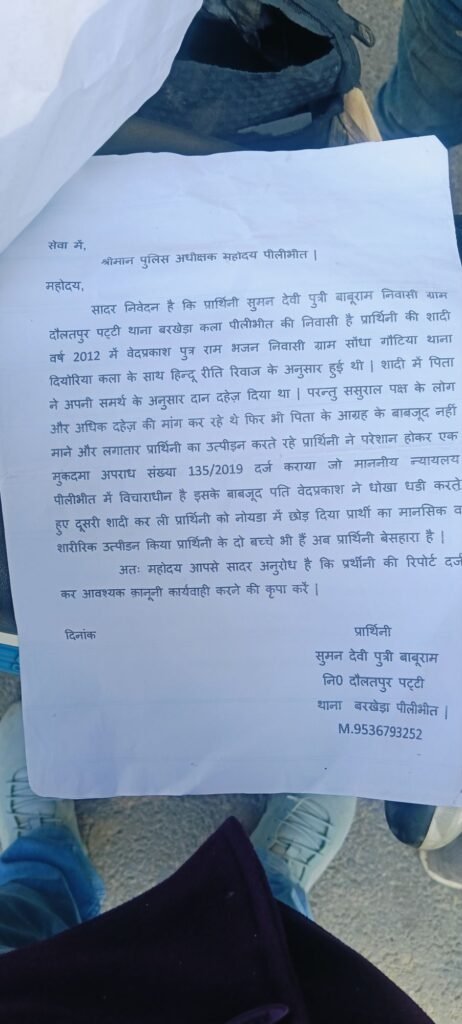 सेवा में,
श्रीमान पुलिस अधीक्षक महोदय पीलीभीत |
महोदय,
सादर निवेदन है कि प्रार्थिनी सुमन देवी पुत्री बाबूराम निवासी ग्राम
दौलतपुर पट्टी थाना बरखेड़ा कला पीलीभीत की निवासी है प्रार्थिनी की शादी
वर्ष 2012 में वेदप्रकाश पुत्र राम भजन निवासी ग्राम सौंधा गौटिया थाना
दियोरिया कला के साथ हिन्दू रीति रिवाज के अनुसार हुई थी | शादी में पिता
ने अपनी समर्थ के अनुसार दान दहेज़ दिया था | परन्तु ससुराल पक्ष के लोग
और अधिक दहेज़ की मांग कर रहे थे फिर भी पिता के आग्रह के बाबजूद नहीं
माने और लगातार प्रार्थिनी का उत्पीड़न करते रहे प्रार्थिनी ने परेशान होकर एक
मुकदमा अपराध संख्या 135/2019 दर्ज कराया जो माननीय न्यायलय
पीलीभीत में विचाराधीन है इसके बाबजूद पति वेदप्रकाश ने धोखा धड़ी करते
हुए दूसरी शादी कर ली प्रार्थिनी को नोयडा में छोड़ दिया प्रार्थी का मानसिक व
शारीरिक उत्पीडन किया प्रार्थिनी के दो बच्चे भी हैं अब प्रार्थिनी बेसहारा है |
अतः महोदय आपसे सादर अनुरोध है कि प्रर्थीनी की रिपोर्ट दर्ज
कर आवश्यक क़ानूनी कार्यवाही करने की कृपा करें |
दिनांक
प्रार्थिनी
सुमन देवी पुत्री बाबूराम
नि0 दौलतपुर पट्टी
थाना बरखेड़ा पीलीभीत |
M.9536793252